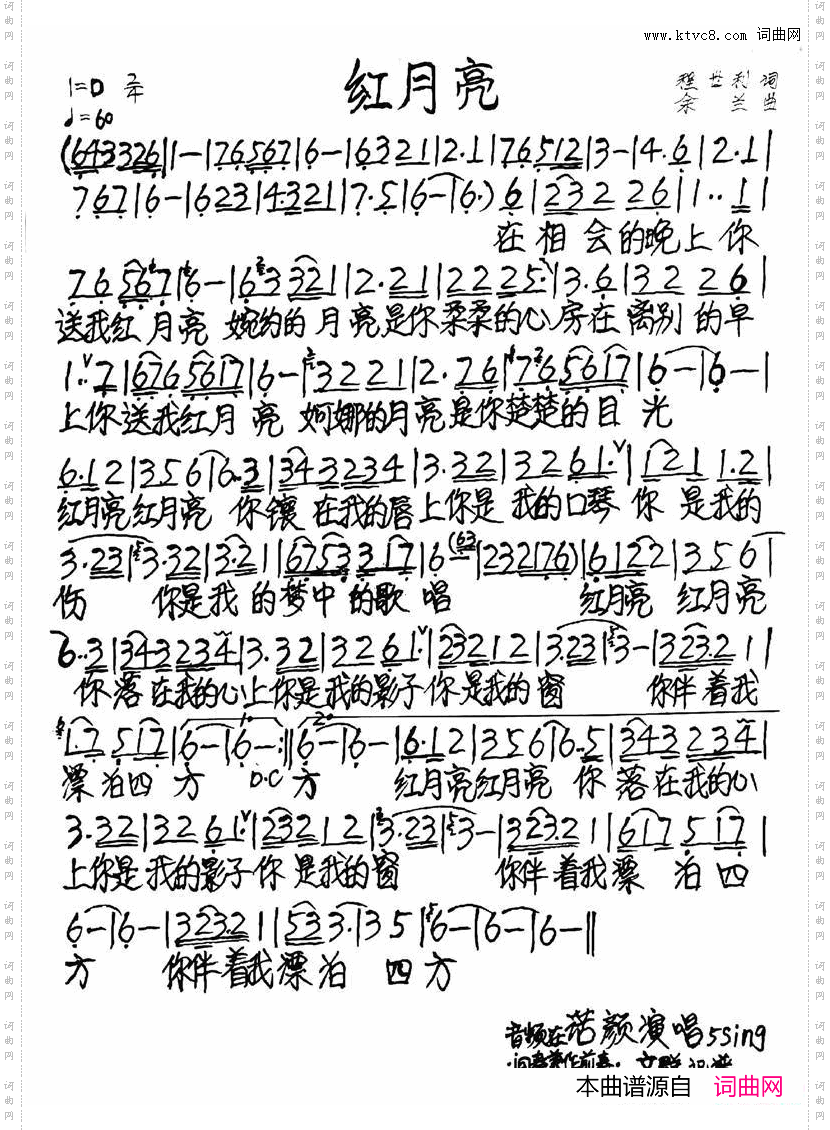 www.ktvc8.com 词曲网
红月亮
1=D 2/4
程世利词
♩=60
余兰曲
(643326|1-|76567|6-|6321|2·1|76512|3-|4·6|2·1|
767|6-|6223|4321|7·5|6-|6·)6|232 26|1··1|
在相会的晚上你
76567|6-|63321|2·21|22225|3·6|322 26|
送我红月亮婉约的月亮是你柔柔的心房在离别的早
1··7|6765617|6-|32221|2·76|7656 17|6-|6-|
上你送我红月亮婀娜的月亮是你楚楚的目光
6·12|356|6··3|343234|3·32|3261·|121 1·2|
红月亮红月亮你镶在我的唇上你是我的口琴你是我的
3·23|3·32|3·21|6753317|6(63|232176)|6122|356|
伤你是我的梦中的歌唱红月亮红月亮
6··3|343234|3·32|3261·|23212|3·23|3-|323·21|
你落在我的心上你是我的影子你是我的窗你伴着我
1·7 517|6-|6-:‖6-|6-|6·12|356|6··5|343234|
漂泊四方 D.C 方红月亮红月亮你落在我的心
3·32|3261·|23212|3·23|3-|323·21|617 517|
上你是我的影子你是我的窗你伴着我漂泊四
6-|6-|323·21|533·|35|6-|6-|6-‖
方你伴着我漂泊四方
音频在诺颜演唱5sing
本曲谱源自 词曲网
词曲网